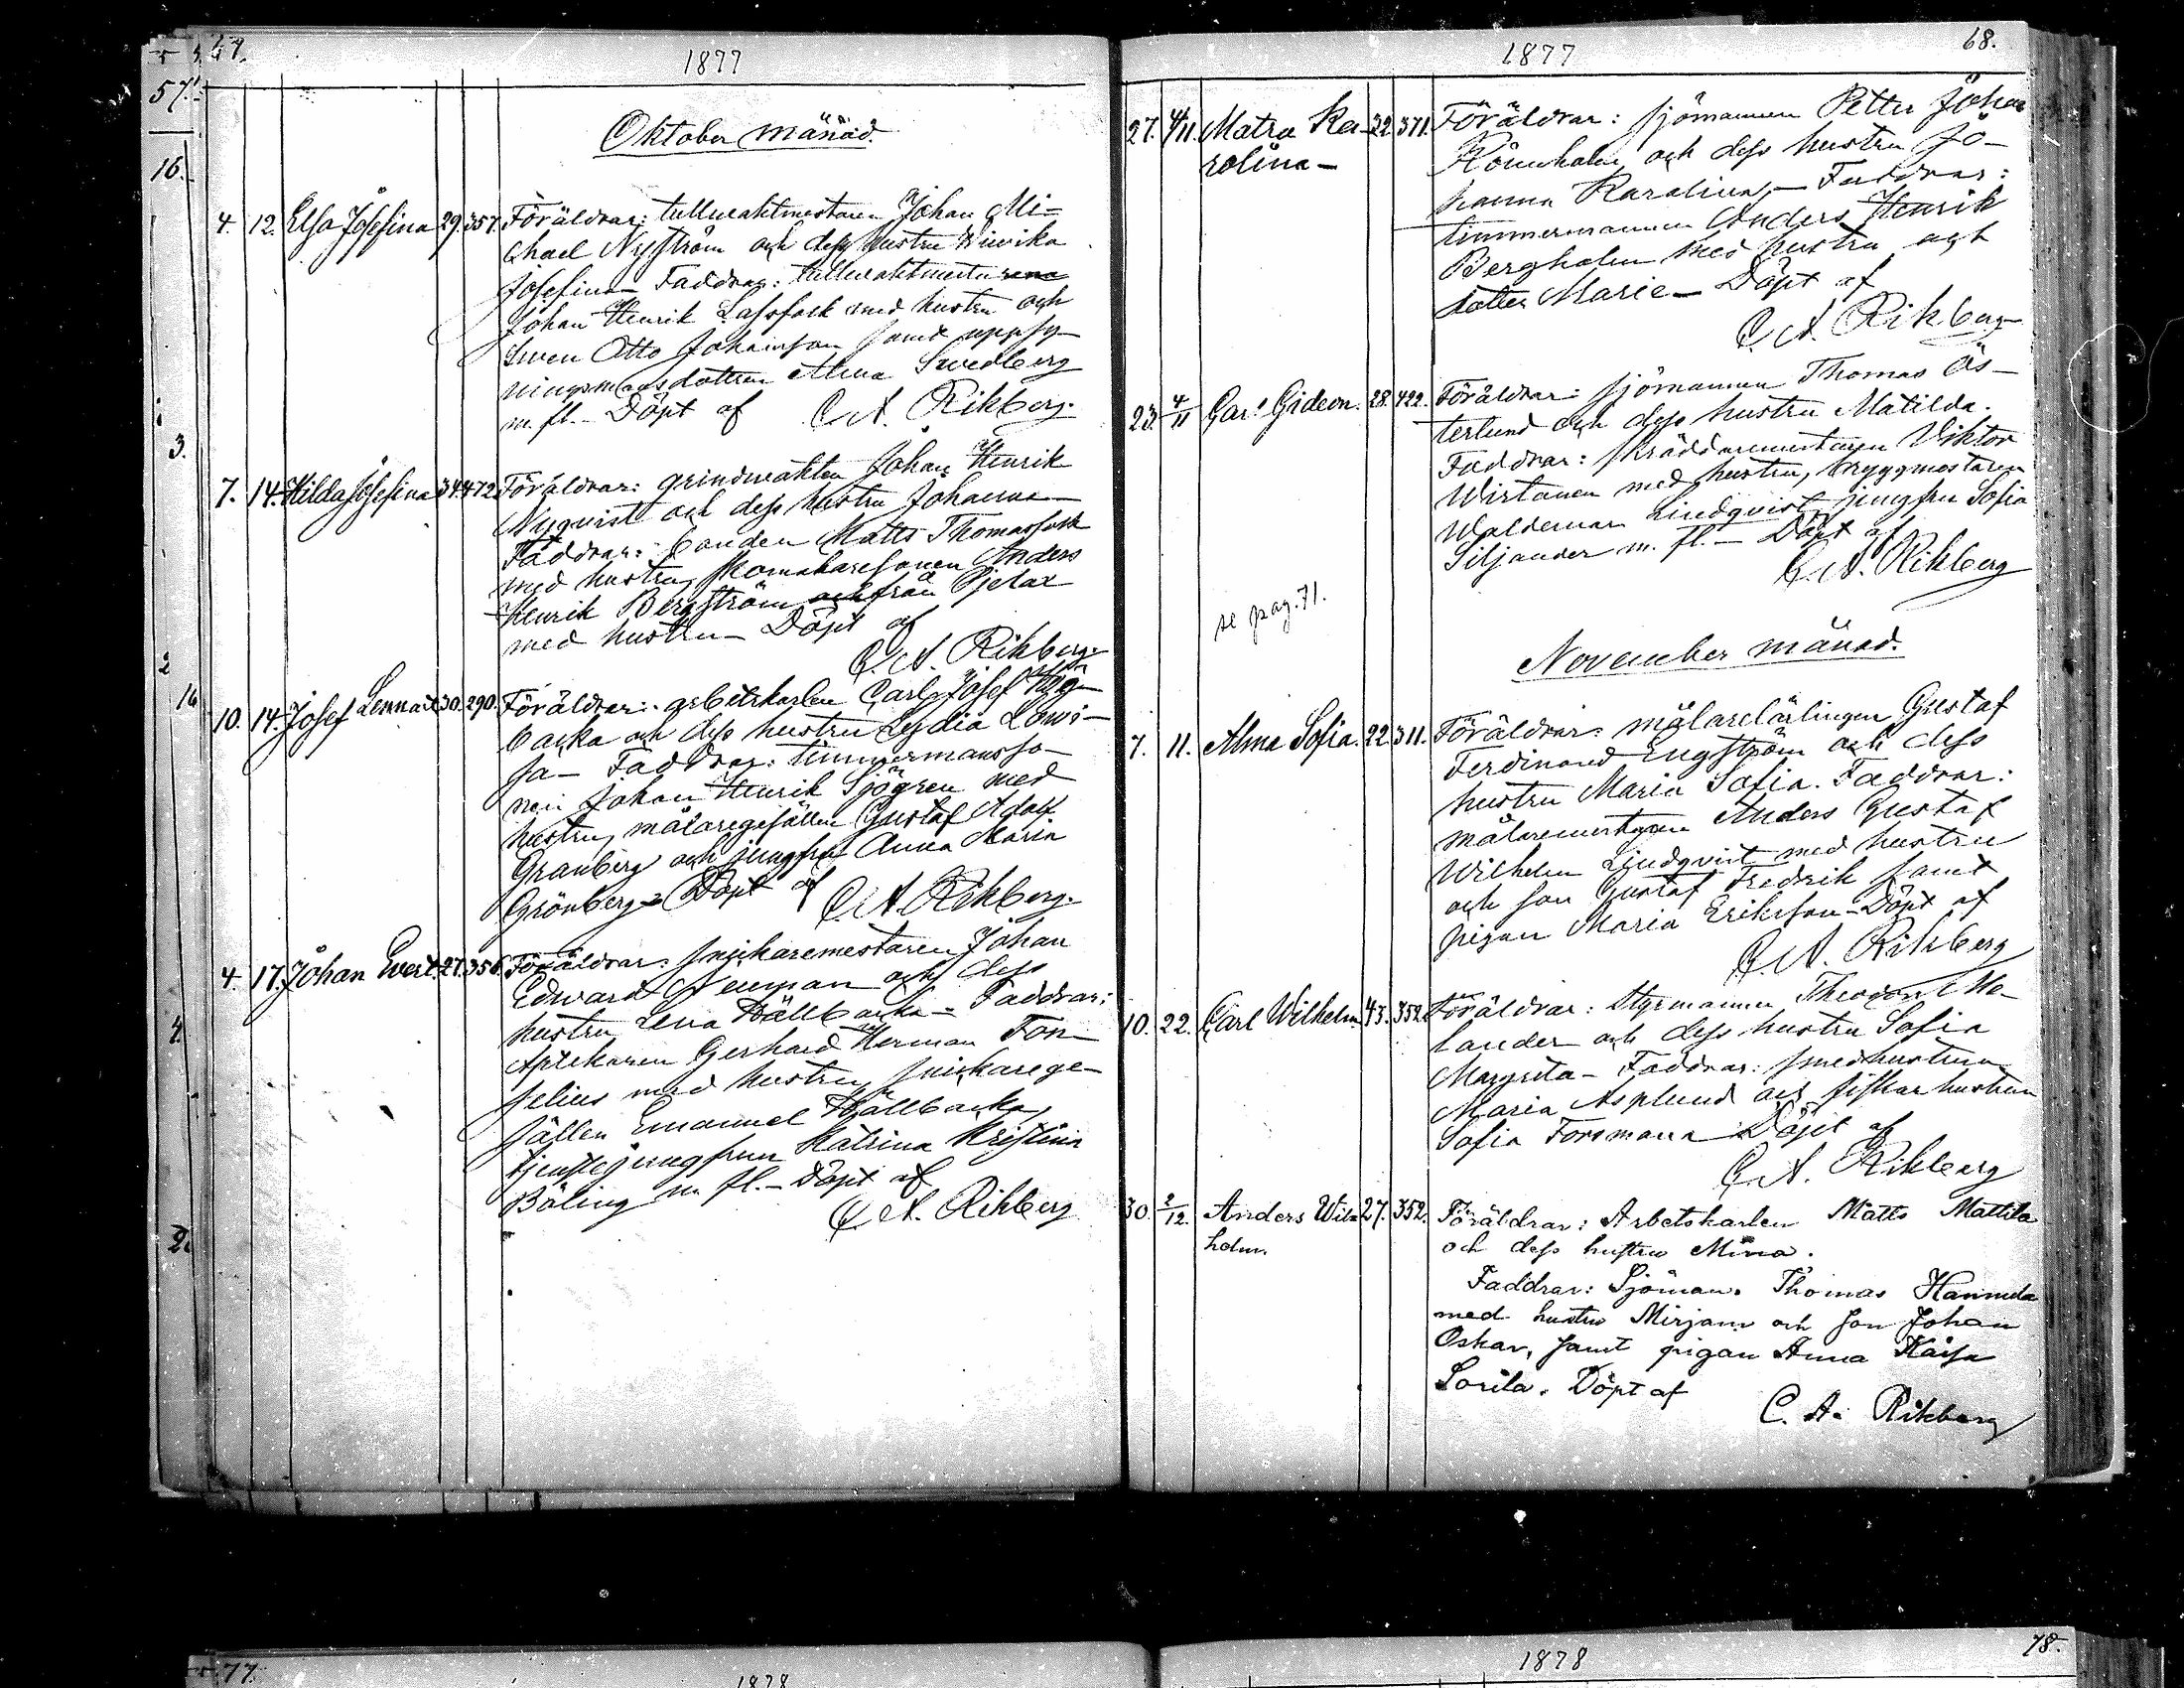 67.
1877
57.
16.
3.
2
16
4.
2.
Oktober månad.
4. 12. Elsa Josefina 29. 357. Föräldrar: tullvaktmestaren Johan Mi-
chael Nyström och dess hustru Ulrika
Josefina - Faddrar: tullvaktmestarena
Johan Henrik Lassfolk med hustru och
Sven Otto Johansson samt uppsy-
ningsmansdottren Alma Svedberg
m. fl. - Döpt af C. A. Rikberg.
7. 14. Hilda Josefina 34. 472. Föräldrar: grindvakten Johan Henrik
Nyqvist och dess hustru Johanna -
Faddrar: bonden Matts Thomasfolk
med hustru, skomakaresonen Anders
Henrik Bergström och från Pjelax
med hustru - Döpt af
C. A. Rikberg.
10. 14. Josef Lennart 30. 290. Föräldrar: arbetskarlen Carl Josef Hög-
backa och dess hustru Lydia Lowi-
sa - Faddrar: timmermansso-
nen Johan Henrik Sjögren med
hustru, målaregesällen Gustaf Adolf
Granberg och jungfru Anna Maria
Grönberg - Döpt af C. A. Rikberg.
4. 17. Johan Evert. 27. 356. Föräldrar: snickaremestaren Johan
Edward Neuman och dess
hustru Lena Hällbacka - Faddrar:
Aptekaren Gerhard Herman Fon-
selius med hustru, snickarege-
sällen Emanuel Hällbacka,
tjenstejungfrun Katrina Kristina
Böling m. fl. - Döpt af
C. A. Rikberg
1877
68.
27. 4/11. Matra Ka- 32. 371. Föräldrar: sjömannen Petter Johan
rolina - Rönnholm och dess hustru Jo-
hanna Karolina, - Faddrar:
timmermannen Anders Henrik
Bergholm med hustru och
dotter Marie - Döpt af
C. A. Rikberg
23. 4/11 Carl Gideon. 28. 422. Föräldrar: sjömannen Thomas Ös-
terlund och dess hustru Matilda.
Faddrar: skräddaremestaren Viktor
Wirtanen med hustru, byggmestaren
Waldemar Lindqvist, jungfru Sofia
Siljander m. fl. - Döpt af
C. A. Rikberg
se pag. 71.
November månad.
7. 11. Alma Sofia. 22. 311. Föräldrar: målarelärlingen Gustaf
Ferdinand Engström och dess
hustru Maria Sofia. Faddrar:
målaremestaren Anders Gustaf
Wilhelm Lindqvist med hustru
och son Gustaf Fredrik samt
pigan Maria Eriksson - Döpt af
C. A. Rikberg
10. 22. Carl Wilhelm 43. 352. Föräldrar: styrmannen Theodor Me-
lander och dess hustru Sofia
Margreta - Faddrar: smedhustrun
Maria Asplund och fiskarhustrun
Sofia Forsman - Döpt af
C. A. Rikberg
30. 2/12. Anders Wil- 27. 352. Föräldrar: Arbetskarlen Matts Mattila
helm. och dess hustru Mina.
Faddrar: Sjöman. Thomas Hannula
med hustru Mirjam och son Johan
Oskar, samt pigan Anna Kaisa
Sorila. Döpt af
C. A. Rikberg
77.
1878
1878
78.